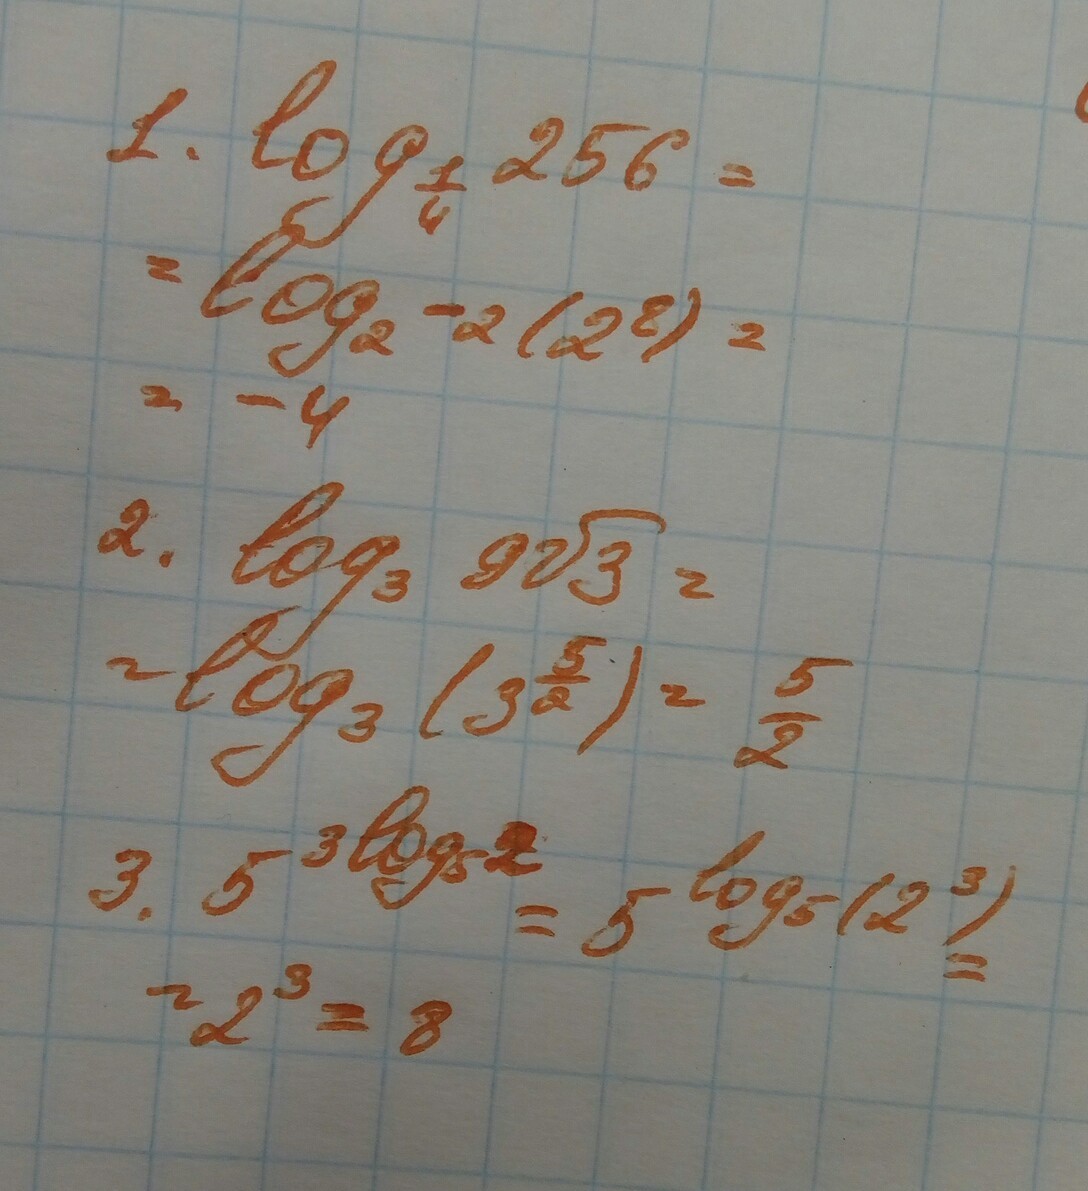 1. log_{1/4} 256 =
= log_{2^{-2}} (2^8) =
= -4
2. log_3 9√3 =
= log_3 (3^{5/2}) = 5/2
3. 5^{3log_5 2} = 5^{log_5 (2^3)} =
= 2^3 = 8